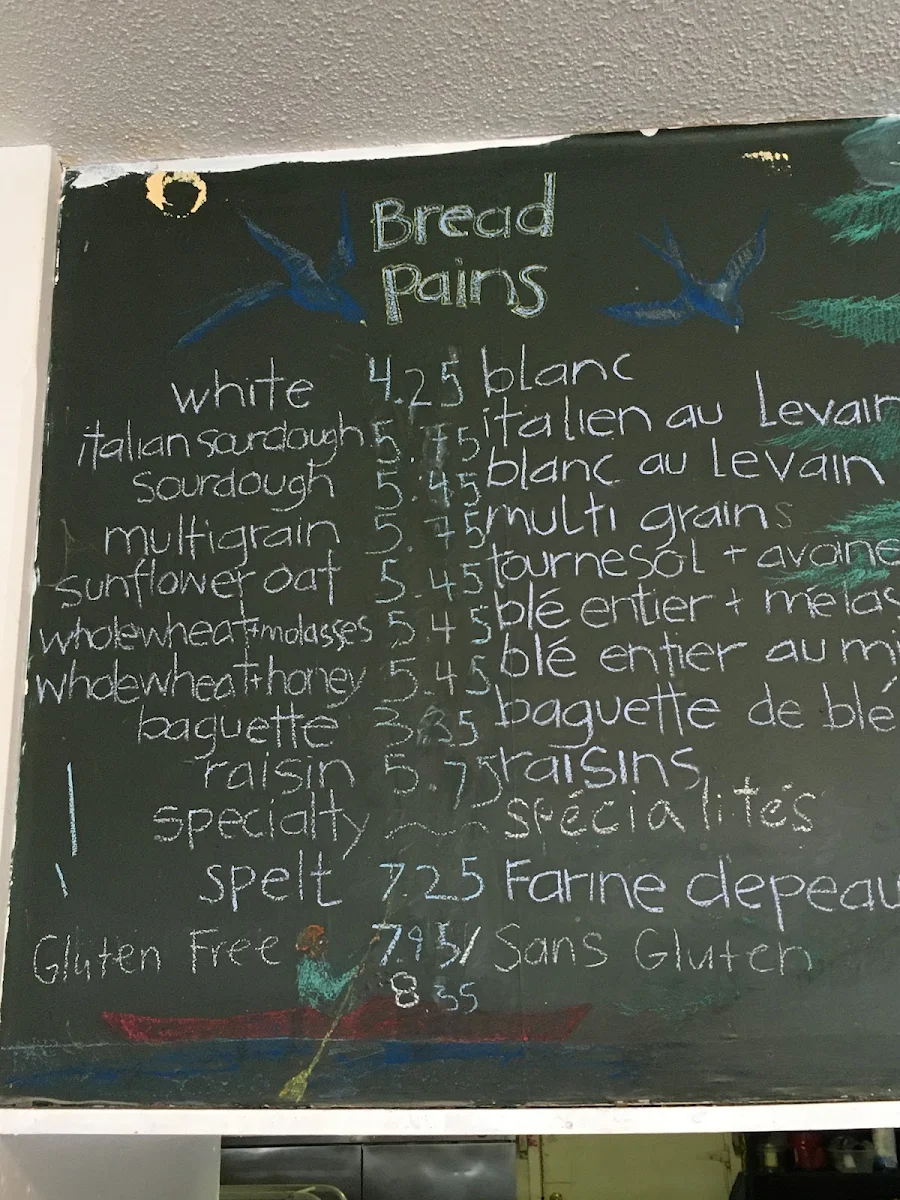 Bread
Pains
white 4.25 blanc
italian sourdough 5.75 italien au Levain
sourdough 5.45 blanc au Levain
multigrain 5.75 multi grains
sunflower oat 5.45 tournesol + avoine
wholewheat+molasses 5.45 blé entier + mélas
wholewheat+honey 5.45 blé entier au mi
baguette 3.35 baguette de blé
raisin 5.75 raisins
specialty ~~~ spécialités
spelt 7.25 Farine d'epeau
Gluten Free 7.95/ Sans Gluten
8.35